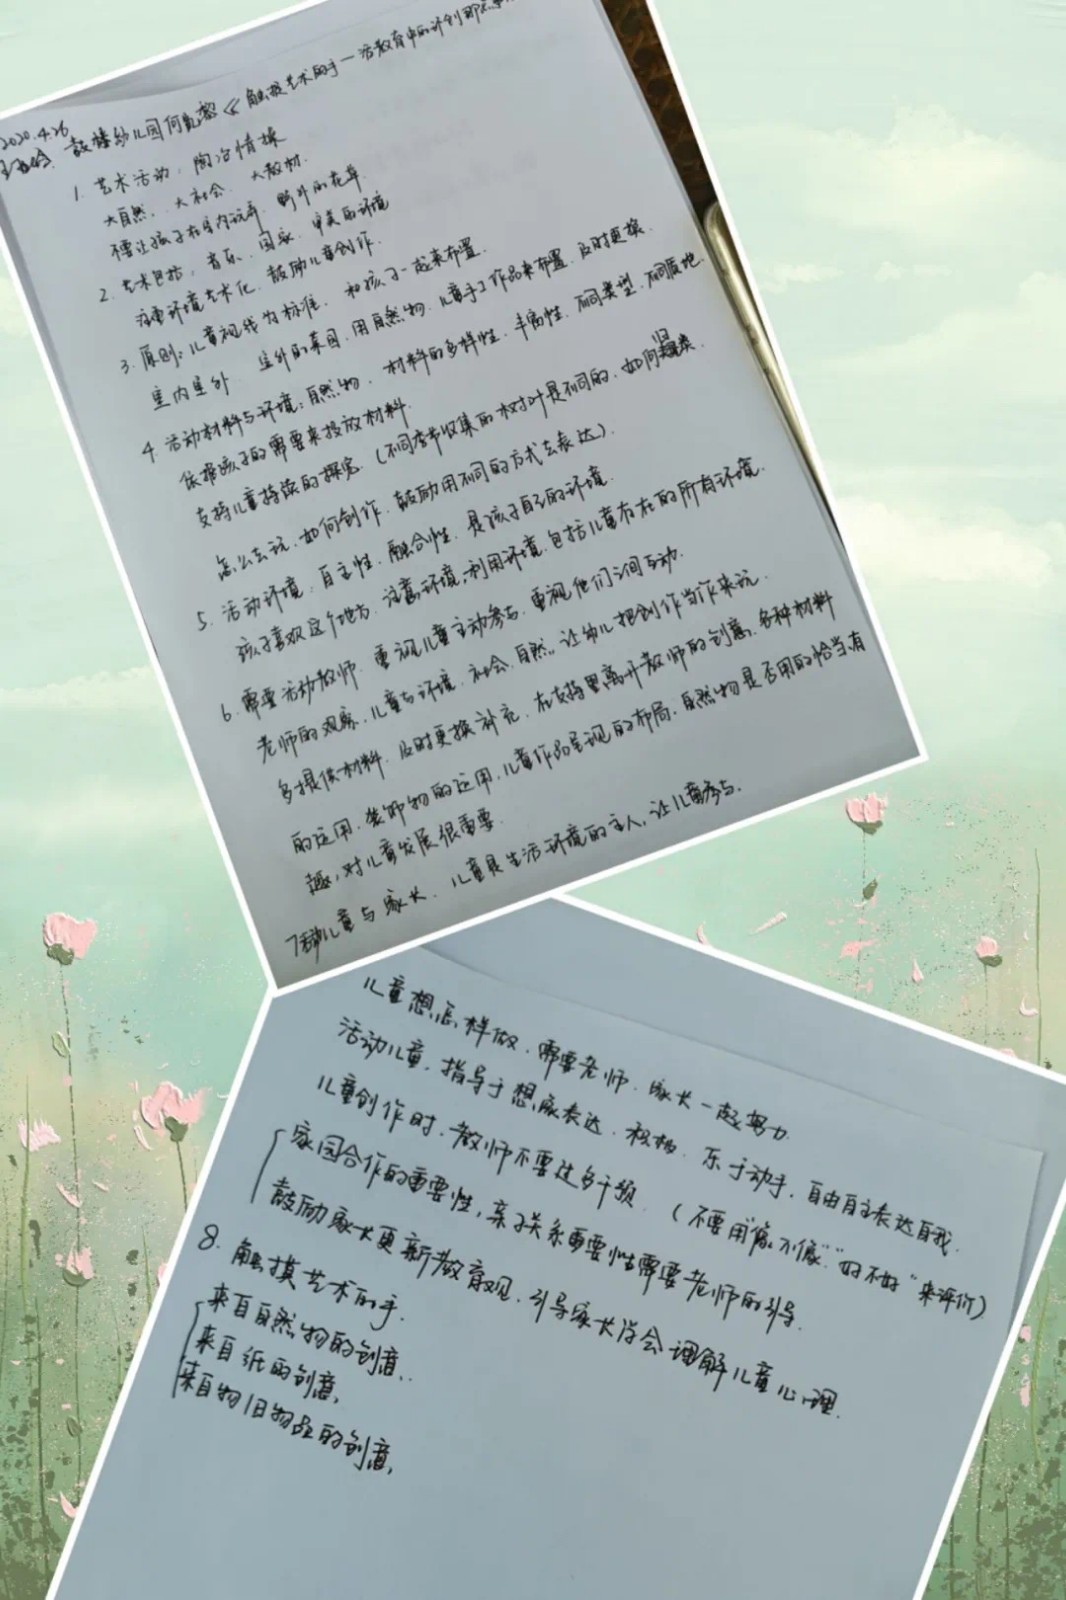 2020.4.26
鼓楼幼儿园何 《触摸艺术的手一活教育中的环创那点事
1. 艺术活动, 陶冶情操
大自然、大社会、大教材.
不要让孩子在室内玩弄、野外的花草.
2. 艺术包括, 音乐、图画、审美的环境
注重环境艺术化, 鼓励儿童创作.
3. 原则: 儿童视线为标准, 和孩子一起来布置.
室内室外 室外的菜园, 用自然物, 儿童手工作品来布置, 及时更换.
4. 活动材料与环境: 自然物, 材料的多样性, 丰富性, 不同类型, 不同质地.
依据孩子的需要来投放材料.
支持儿童持续的探究. (不同季节收集的树叶是不同的, 如何归类.
怎么去玩, 如何创作, 鼓励用不同的方式去表达).
5. 活动环境, 自主性, 融合性, 是孩子自己的环境.
孩子喜欢这个地方, 注意环境, 利用环境, 包括儿童存在的所有环境.
6. 需要活动教师, 重视儿童主动参与, 重视他们之间互动.
老师的观察, 儿童与环境、社会、自然, 让幼儿把创作当作来玩.
多提供材料, 及时更换补充, 在支持里离开教师的创意, 各种材料
的运用, 装饰物的运用, 儿童作品呈现的布局, 自然物是否用的恰当, 有
趣, 对儿童发展很重要.
7 活动儿童与家长, 儿童是生活环境的主人, 让儿童参与.
儿童想怎样做, 需要老师, 家长一起努力.
活动儿童, 指导于想象表达, 积极, 乐于动手, 自由自主表达自我.
儿童创作时, 教师不要过多干预. (不要用"像不像""好不好"来评价)
家园合作的重要性, 亲子关系重要性需要老师的引导.
鼓励家长更新教育观, 引导家长学会理解儿童心理.
8. 触摸艺术的手.
来自自然物的创意.
来自纸的创意,
来自物旧物品的创意,